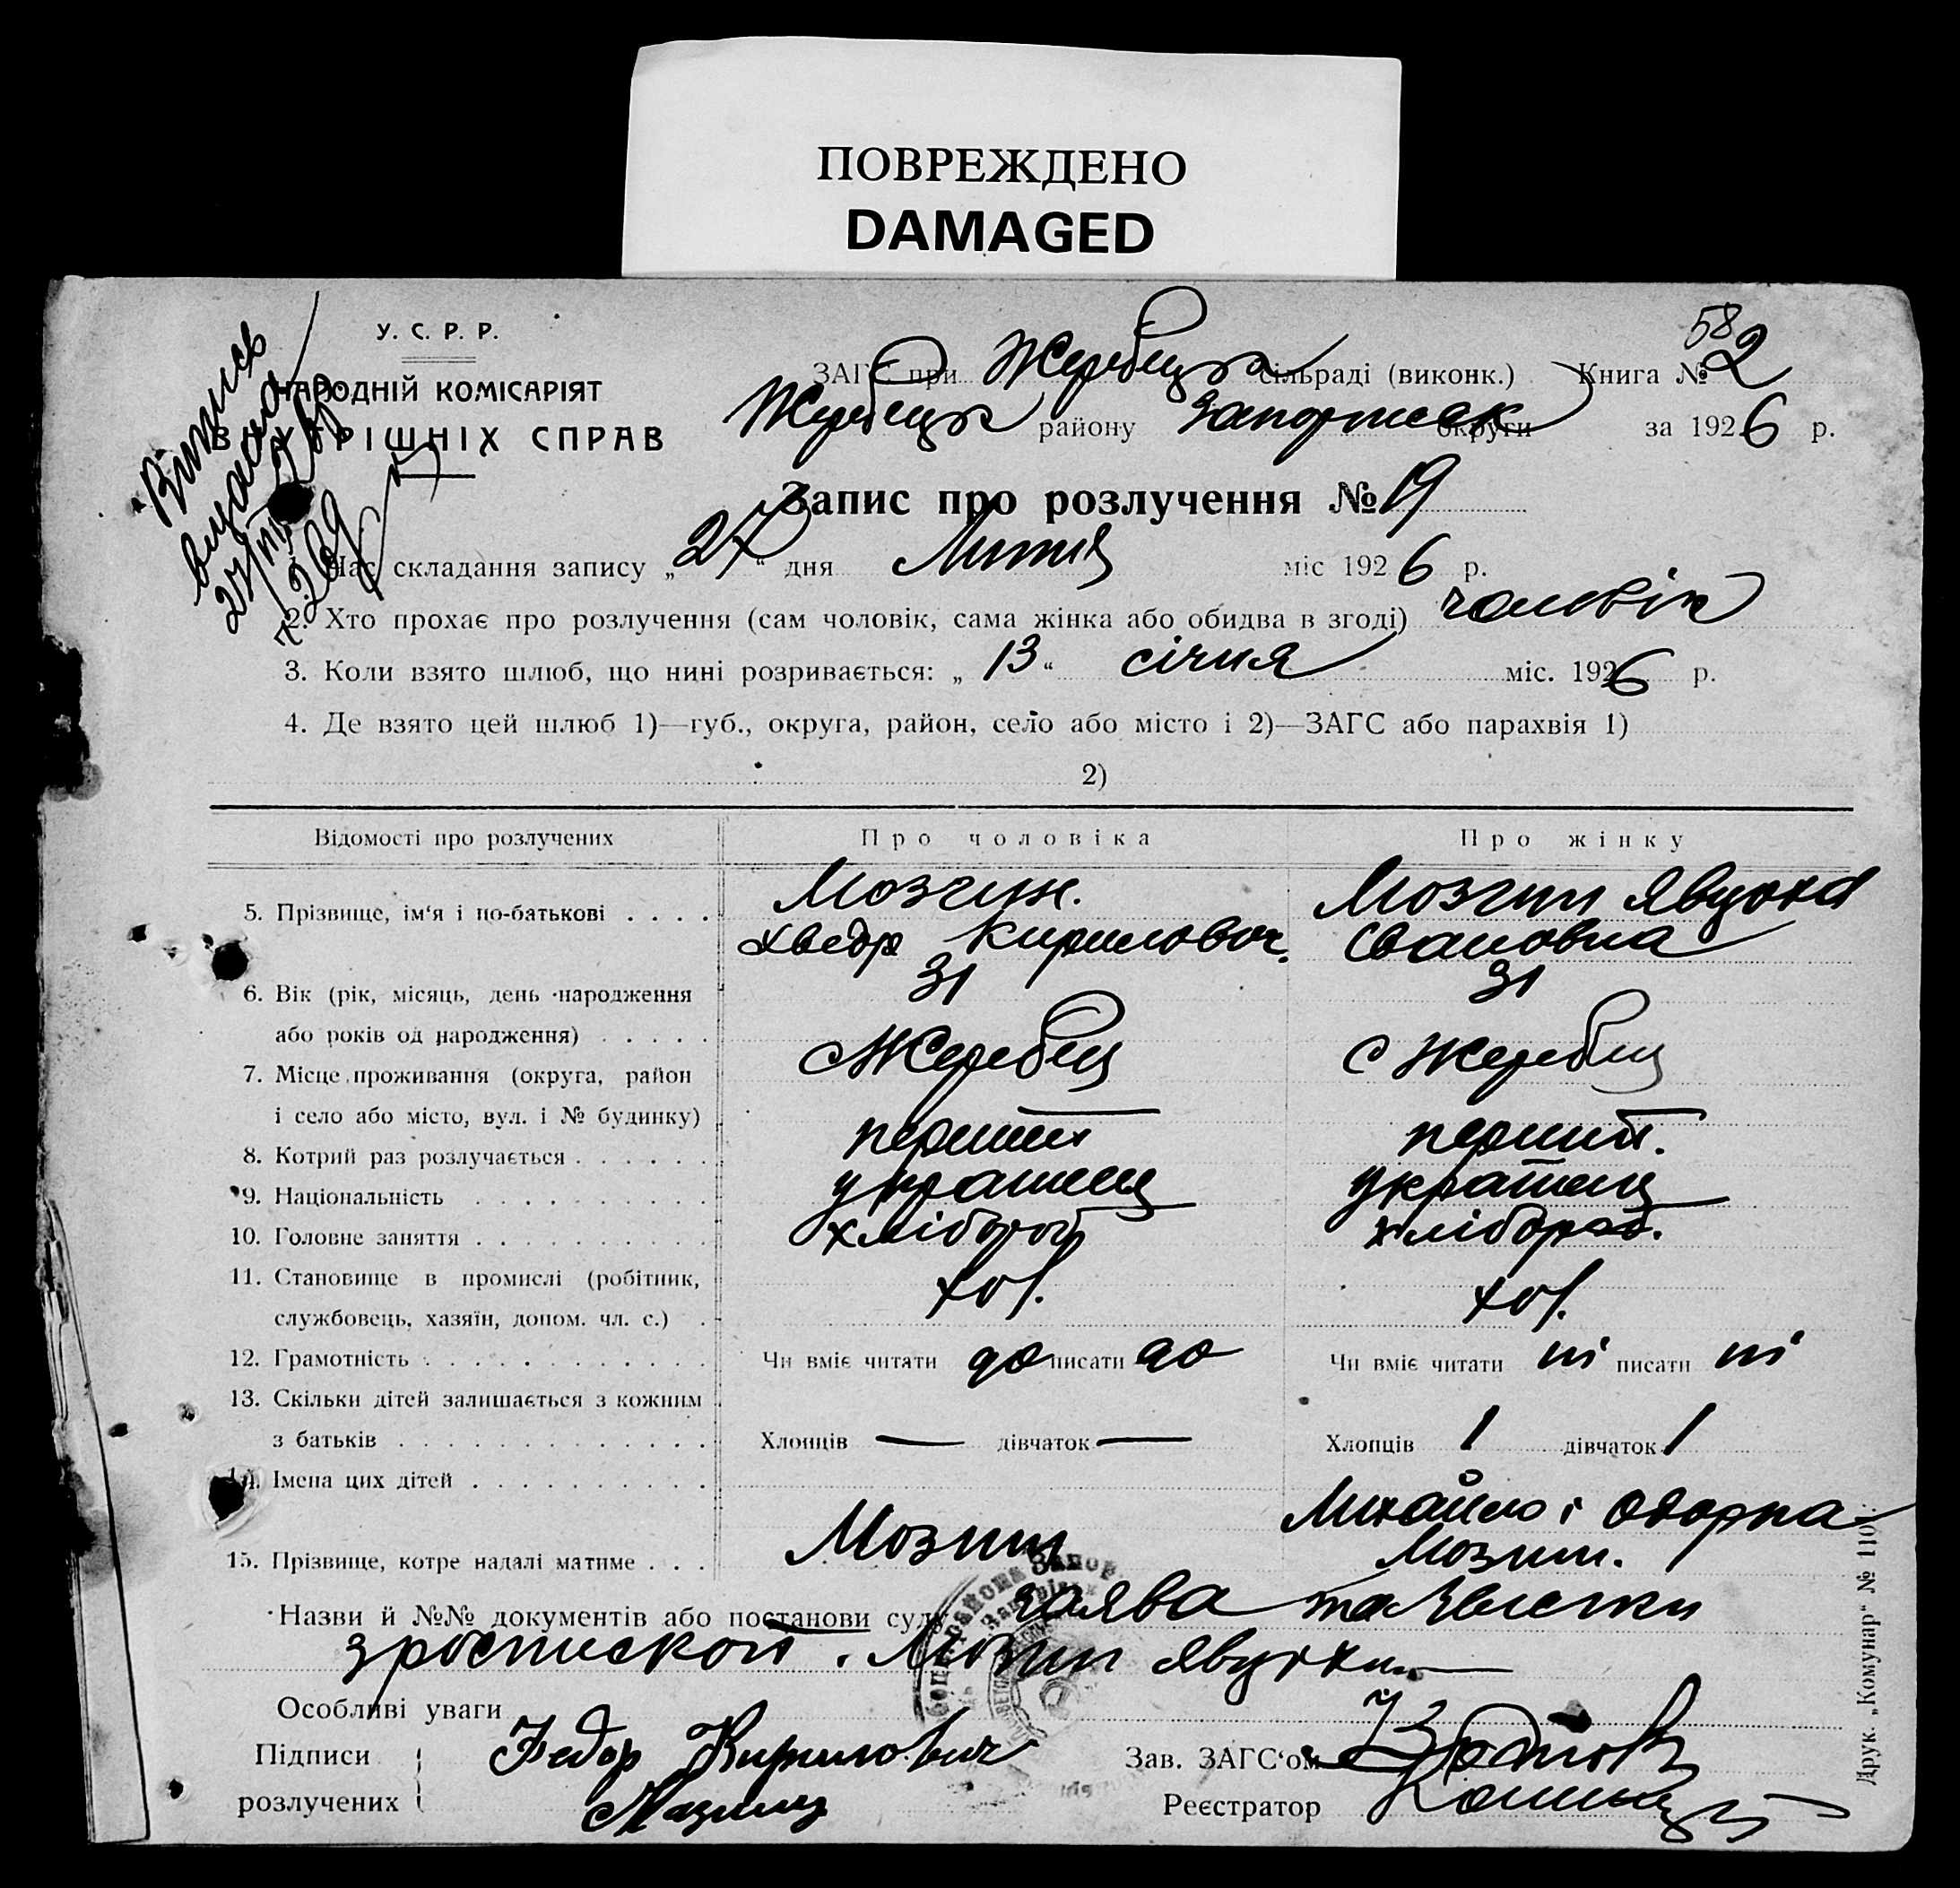 ПОВРЕЖДЕНО
DAMAGED
У. С. Р. Р.
НАРОДНІЙ КОМІСАРІЯТ
ВНУТРІШНІХ СПРАВ
Витись
видана
58
ЗАГС при Жеребецьк сільраді (виконк.) Книга № 2
Жеребецьк району Запоріжськ округи за 1926 р.
Запис про розлучення № 19
1. Час складання запису „27“ дня Лютня міс 1926 р.
2. Хто прохає про розлучення (сам чоловік, сама жінка або обидва в згоді) чоловік
3. Коли взято шлюб, що нині розривається: „13“ січня міс. 1926 р.
4. Де взято цей шлюб 1)—губ., округа, район, село або місто і 2)—ЗАГС або парахвія 1)
2)
Відомості про розлучених Про чоловіка Про жінку
5. Прізвище, ім‘я і по-батькові . . . . Мозгин. Мозгин Явдоха
Хведор Кирилович. Івановна
6. Вік (рік, місяць, день народження 31 31
або років од народження) . . . . .
7. Місце проживання (округа, район с Жеребец с Жеребец
і село або місто, вул. і № будинку)
8. Котрий раз розлучається . . . . . . перший перший.
9. Національність . . . . . . . . українец українец
10. Головне заняття . . . . . . . . . . хлібороб хлібороб.
11. Становище в промислі (робітник,
службовець, хазяїн, допом. чл. с.) .
12. Грамотність . . . . . . . . . . . . Чи вміє читати до писати до Чи вміє читати ні писати ні
13. Скільки дітей залишається з кожним
з батьків . . . . . . . . . . . . . Хлопців — дівчаток — Хлопців 1 дівчаток 1
14. Імена цих дітей . . . . . . . . . . Михайло і Одарка
15. Прізвище, котре надалі матиме . . . Мозгин Мозгин.
Назви й №№ документів або постанови суду заява та
зроспиской. Мозгин Явдохи
Особливі уваги
Підписи Федор Кирилович Зав. ЗАГС‘ом
розлучених Реєстратор
Друк. „Комунар“ № 110.